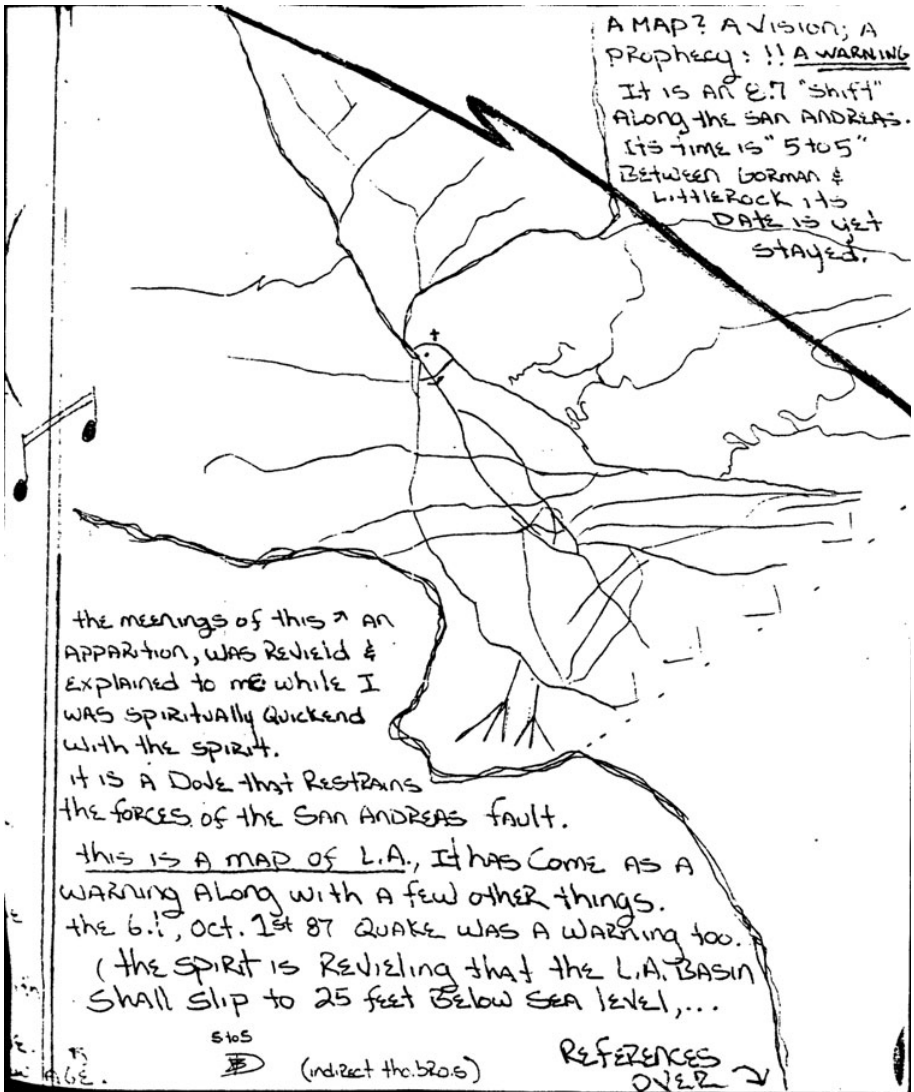 A MAP? A VISION; A
PROPHECY: !! A WARNING
It is AN 8.7 "Shift"
Along the SAN ANDREAS.
Its time is "5 to 5"
Between GORMAN &
LittleRock its
DATE is yet
stAyed.
the meenings of this ↗ AN
APPARition, was Revield &
Explained to me while I
was spiritually Quickend
with the spirit.
it is A Dove that Restrains
the forces of the SAN ANDREAS fault.
this is A map of L.A., It has Come As A
WARNING Along with A few other things.
the 6.1, Oct. 1st 87 QUAKE WAS A WARNING too.
(the spirit is Revieling that the L.A. BASIN
Shall slip to 25 feet Below Sea level,...
5 to 5
(indirect tho. bro.s)
References
OVER ↘